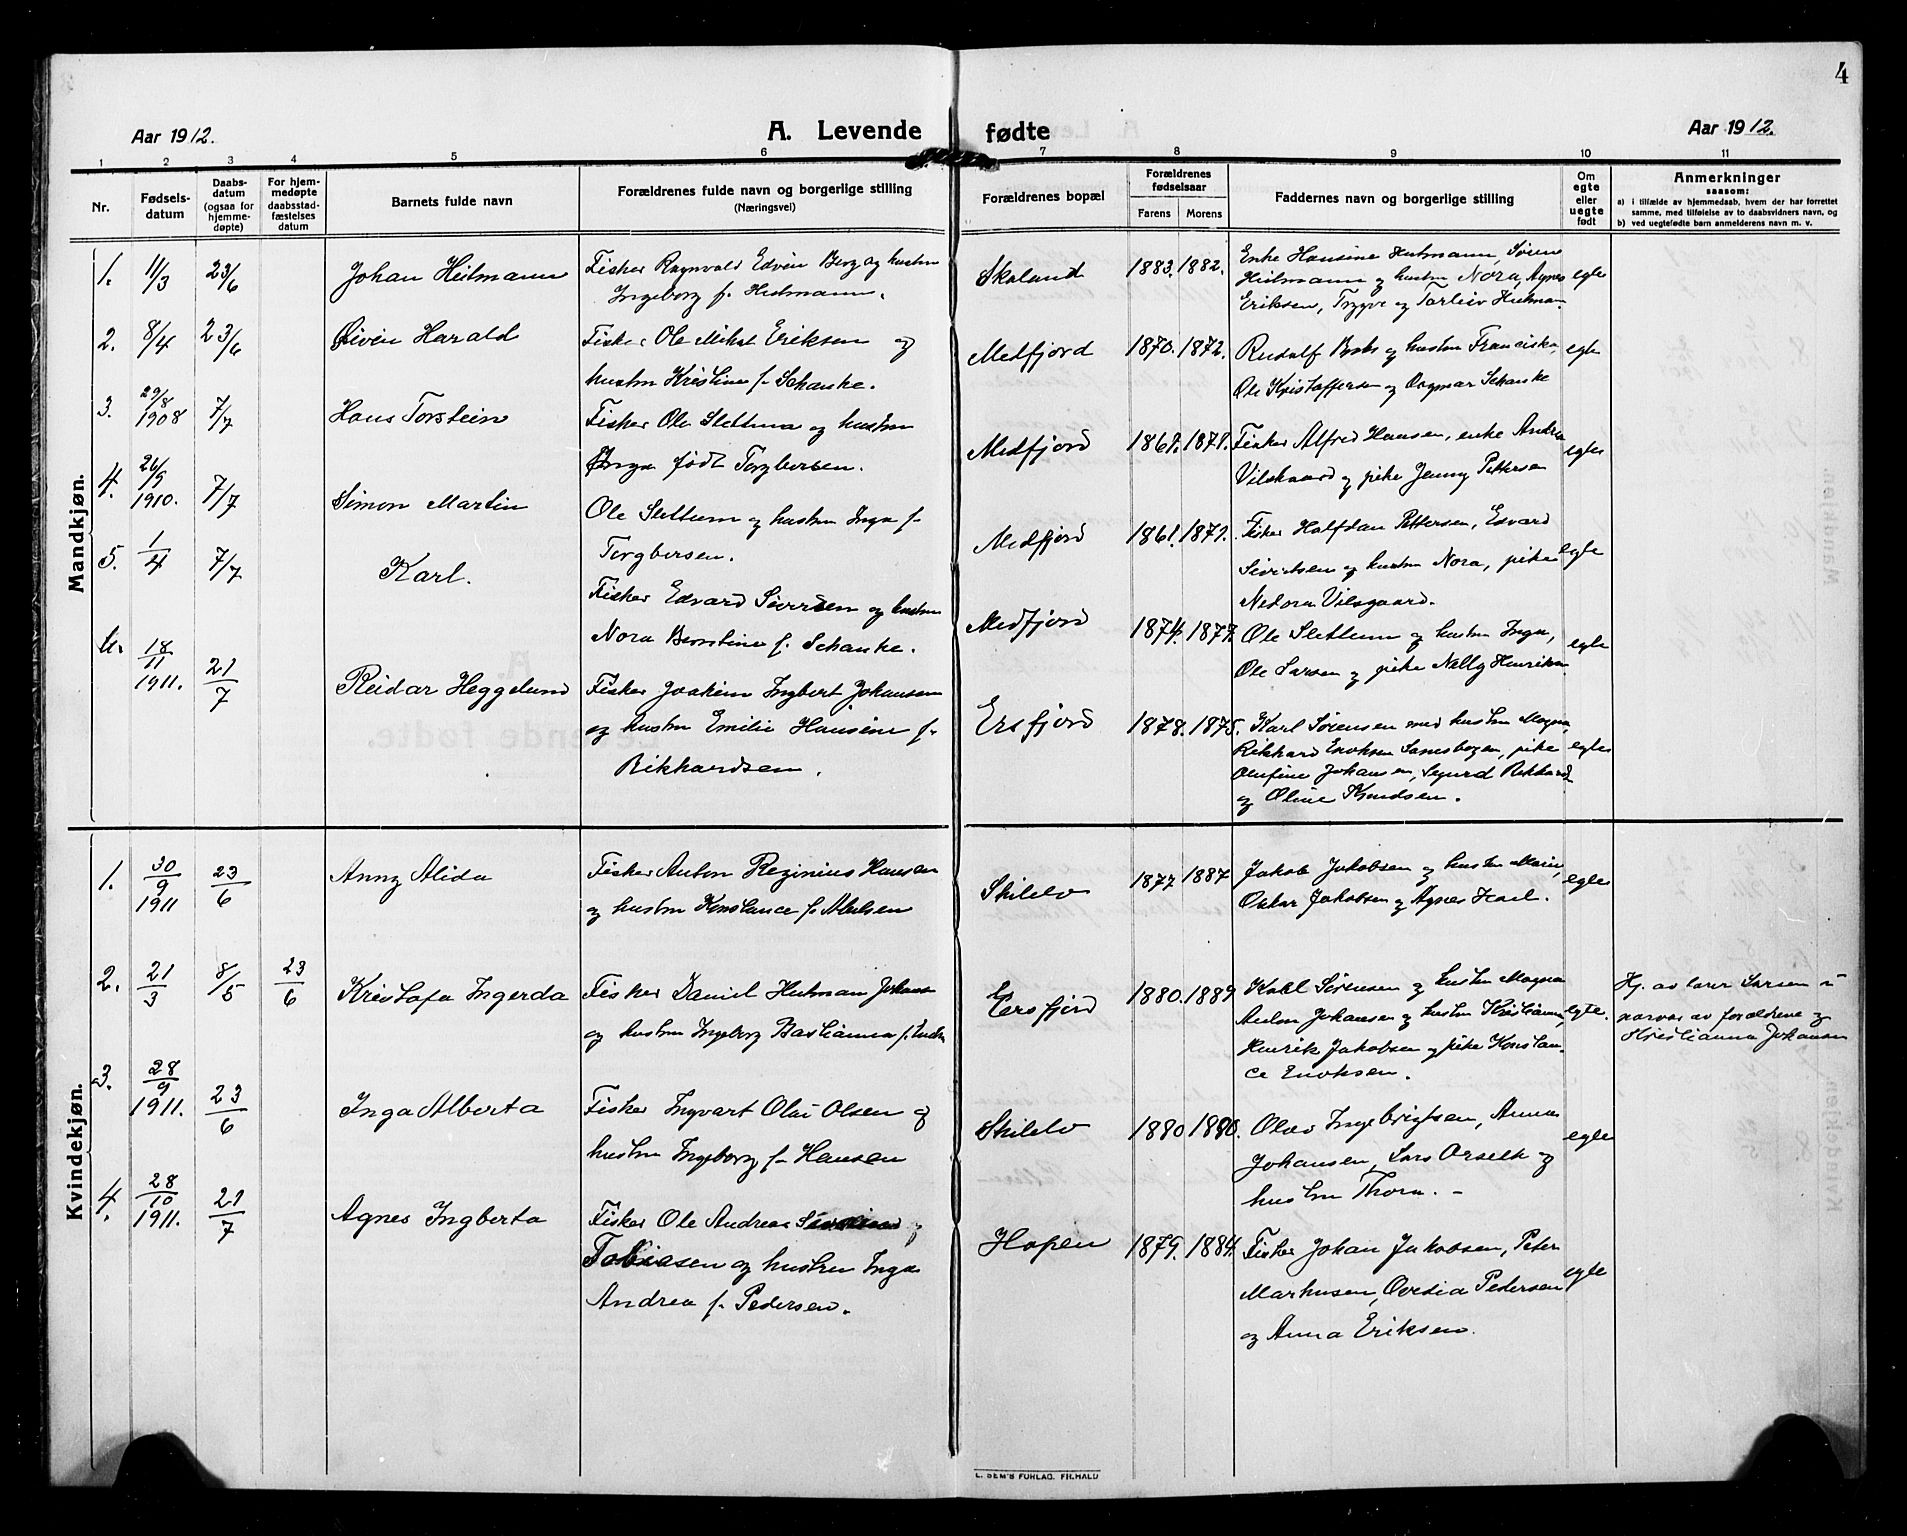 4
Aar 1912.
A. Levende fødte
Aar 1912.
1 2 3 4 5 6 7 8 9 10 11
Nr.
Fødsels-
datum
Daabs-
datum
(ogsaa for
hjemme-
døpte)
For hjem-
medøpte
daabsstad-
fæstelses
datum
Barnets fulde navn
Forældrenes fulde navn og borgerlige stilling
(Næringsvei)
Forældrenes bopæl
Forældrenes
fødselsaar
Farens Morens
Faddernes navn og borgerlige stilling
Om
egte
eller
uegte
født
Anmerkninger
saasom:
a) i tilfælde av hjemmedaab, hvem der har forrettet
samme, med tilføielse av to daabsvidners navn, og
b) ved uegtefødte barn anmelderens navn m. v.
Mandkjøn.
1. 11/3 23/6 Johan Heitmann
Fisker Ragnvald Edvin Berg og hustru
Ingeborg f. Heitmann.
Skaland 1883. 1882.
Enke Hansine Heitmann, Søren
Heitmann og hustru Nora, Agnes
Eriksen, Trygve og Torleiv Heitman
egte
2. 8/4 23/6 Øivin Harald
Fisker Ole Mikal Eriksen og
hustru Kristine f. Schanke.
Medfjord 1870. 1872.
Rudolf og hustru Franciska,
Ole Kristoffersen og Dagmar Schanke
egte
3. 29/8 1908 7/7 Hans Torstein
Fisker Ole Slettum og hustru
Inga født Torgbersen.
Medfjord 1861. 1871.
Fisker Alfred Hansen, enke Andrea
Vilsgaard og pike Jenny Pettersen
egte
4. 26/9 1910. 7/7 Simon Martin
Ole Slettum og hustru Inga f.
Torgbersen.
Medfjord 1861. 1871.
Fisker Halfdan Pettersen, Edvard
Sivertsen og hustru Nora, pike
Nedora Vilsgaard.
egte
5. 1/4 7/7 Karl.
Fisker Edvard Sivertsen og hustru
Nora Berntine f. Schanke.
Medfjord 1874. 1877.
Ole Slettum og hustru Inga,
Ole Larsen og pike Nelly Henriksen
egte
6. 18/11 1911. 21/7 Reidar Heggelund
Fisker Joakim Ingbert Johansen
og hustru Emilie Hansine f.
Rikhardsen.
Ersfjord 1878. 1875.
Karl Sørensen med hustru Magna,
Rikhard Enoksen Sandsbogen, pike
Olufine Johansen, Sigurd Rikhards
og Oline Knudsen.
egte
Kvindekjøn.
1. 30/9 1911 23/6 Anny Alida
Fisker Anton Reginius Hansen
og hustru Konstance f. Abelsen
Skilelv 1877 1887
Jakob Jakobsen og hustru Marie,
Oskar Jakobsen og Agnes Karl.
egte
2. 21/3 8/5 23/6 Kristofa Ingerda
Fisker Daniel Heitman Johans
og hustru Ingeborg Bastianna f.
Ersfjord 1880. 1889
Karl Sørensen og hustru Magna
Anton Johansen og hustru Kristianna,
Henrik Jakobsen og pike Konstan-
ce Enoksen.
egte.
Hj. av lærer Larsen i
nærvær av forældrene og
Kristianna Johansen
3. 28/9 1911. 23/6 Inga Alberta
Fisker Ingvart Olai Olsen og
hustru Ingeborg f. Hansen
Skilelv 1880 1880.
Olav Ingebrigtsen, Anna
Johansen, Lars Orseth og
hustru Thora. –
egte
4. 28/10 1911. 21/7 Agnes Ingberta
Fisker Ole Andreas
Tobiasen og hustru Inga
Andrea f. Pedersen.
Hopen 1879. 1884.
Fisker Johan Jakobsen, Peter
Markusen, Ovedia Pedersen
og Anna Eriksen.
egte
E. SEM'S FORLAG. FR.HALD